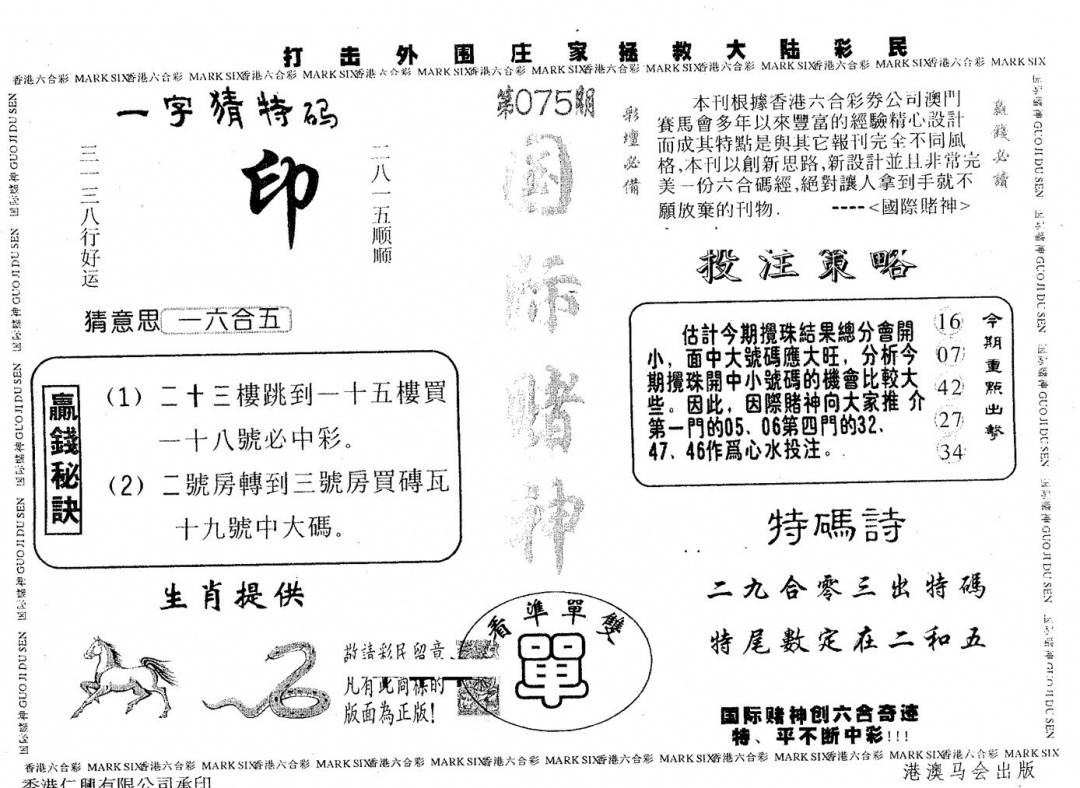 打击外围庄家拯救大陆彩民
香港六合彩 MARK SIX香港六合彩 MARK SIX香港六合彩 MARK SIX香港六合彩 MARK SIX香港六合彩 MARK SIX香港六合彩 MARK SIX香港六合彩 MARK SIX香港六合彩 MARK SIX香港六合彩 MARK SIX
国际赌神 GUO JI DU SEN 国际赌神 GUO JI DU SEN 国际赌神 GUO JI DU SEN 国际赌神 GUO JI DU SEN 国际赌神 GUO JI DU SEN 国际赌神 GUO JI DU SEN
一字猜特码
三一三八行好运
印
二八一五顺顺
猜意思 一六合五
贏錢秘訣
(1) 二十三樓跳到一十五樓買
一十八號必中彩。
(2) 二號房轉到三號房買磚瓦
十九號中大碼。
生肖提供
敬請彩民留意、
凡有此商標的
版面為正版!
第075期
国际赌神
看準單雙
單
彩壇必備
本刊根據香港六合彩券公司澳門
賽馬會多年以來豐富的經驗精心設計
而成其特點是與其它報刊完全不同風
格,本刊以創新思路,新設計並且非常完
美一份六合碼經,絕對讓人拿到手就不
願放棄的刊物. ----<國際賭神>
贏錢必讀
投注策略
估計今期攪珠結果總分會開
小，面中大號碼應大旺，分析今
期攪珠開中小號碼的機會比較大
些。因此，因際賭神向大家推介
第一門的05、06第四門的32、
47、46作爲心水投注。
16
07
42
27
34
今期重點出擊
特碼詩
二九合零三出特碼
特尾數定在二和五
国际赌神创六合奇迹
特、平不断中彩!!!
国际赌神 GUO JI DU SEN 国际赌神 GUO JI DU SEN 国际赌神 GUO JI DU SEN 国际赌神 GUO JI DU SEN 国际赌神 GUO JI DU SEN
香港六合彩 MARK SIX香港六合彩 MARK SIX香港六合彩 MARK SIX香港六合彩 MARK SIX香港六合彩 MARK SIX香港六合彩 MARK SIX香港六合彩 MARK SIX香港六合彩 MARK SIX香港六合彩 MARK SIX
香港仁興有限公司承印
港澳马会出版